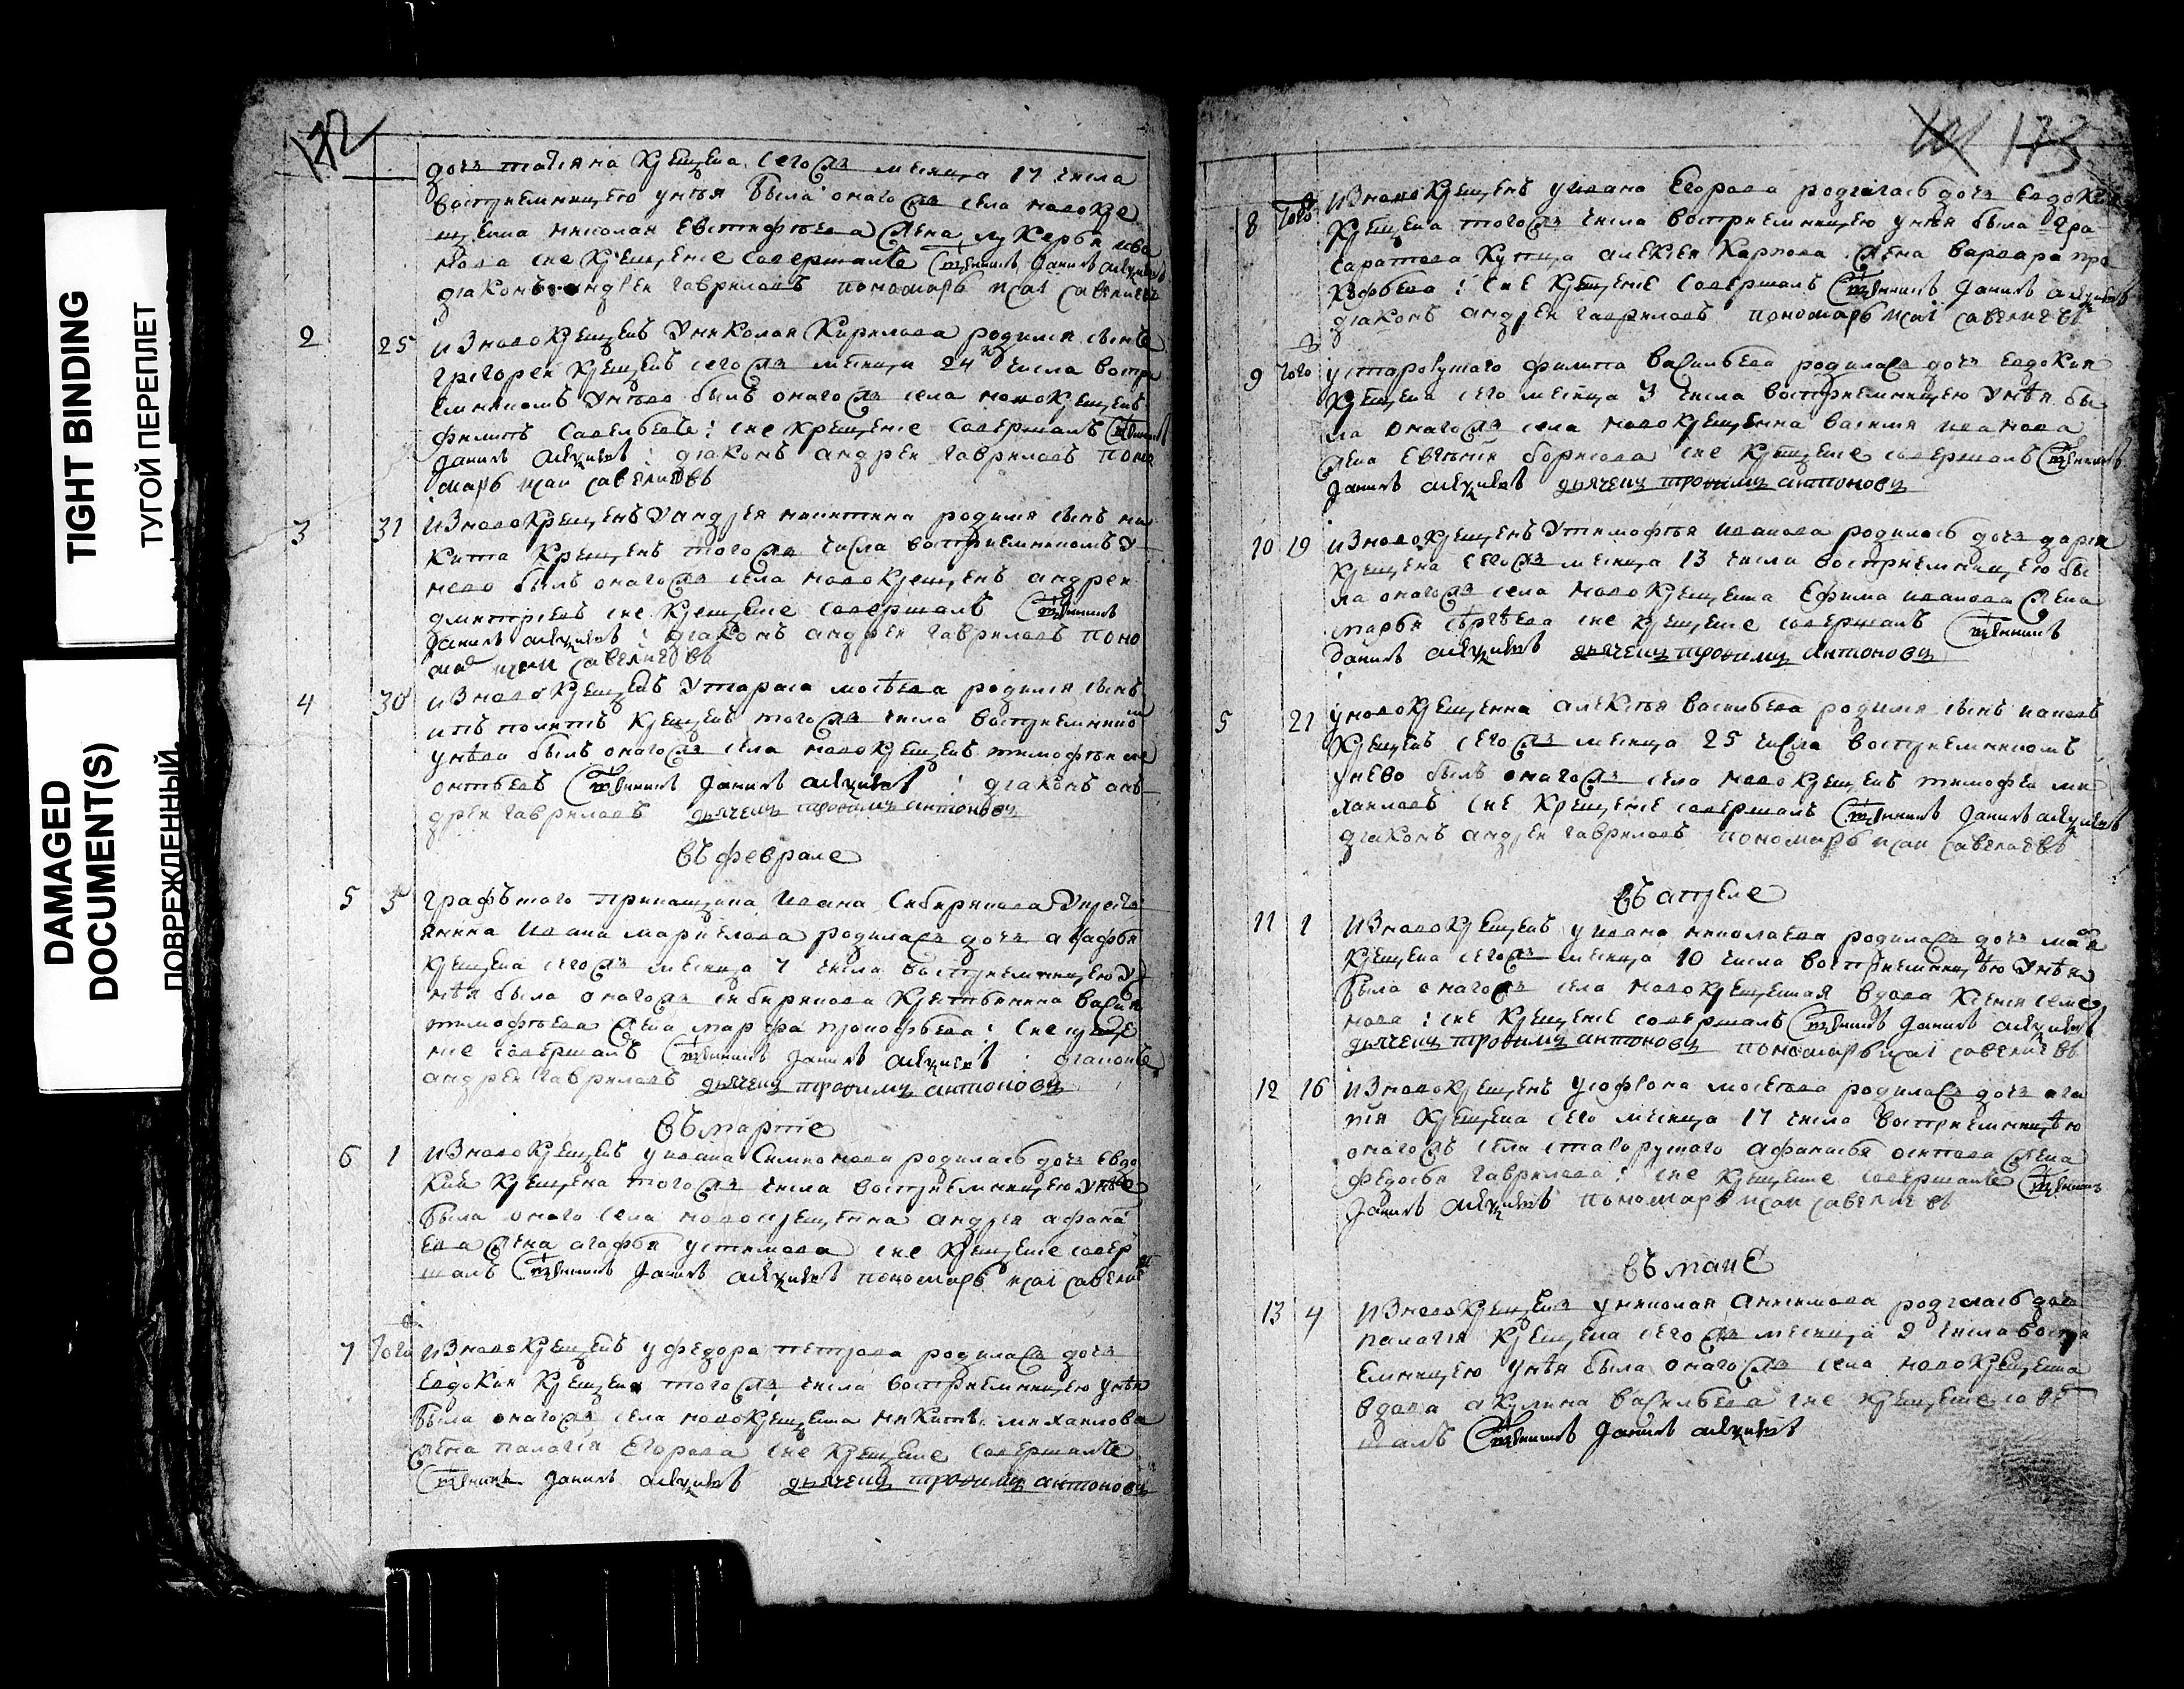 TIGHT BINDING
ТУГОЙ ПЕРЕПЛЕТ
DAMAGED
DOCUMENT(S)
ПОВРЕЖДЕННЫЙ
172
дочь татіана крещена сегожъ месяца 17 числа
воспріемницею унея была оногожъ села новокре
щенна николая Евстифеева жена лукерья ива
нова сие крещение совершалъ священникъ Данилъ
діаконъ андреи гаврилавъ пономарь исаі савельевъ
2 25 изновокрещенъ Униколая Кирилава родился сынъ
григореи крещенъ сегожъ месяца 24 числа воспри
емникомъ Унево былъ оногожъ села новокрещенъ
филипъ савельевъ: сие крещение совершалъ священникъ
Данилъ : діаконъ андреи гаврилавъ поно
марь исаи савельевъ
3 31 изновокрещенъ Уандрея никитина родился сынъ ни
кита крещенъ тогожъ числа воспріемникомъ У
нево былъ оногожъ села новокрещенъ андреи
дмитріевъ сие крещение совершалъ священникъ
Данилъ : діаконъ андреи гаврилавъ поно
марь исаи савельевъ
4 30 изновокрещенъ Утараса мосеева родился сынъ
ипъполитъ крещенъ тогожъ числа воспріемником
унево былъ оногожъ села новокрещенъ тимофеи ле
онтьевъ священникъ Данилъ : діаконъ ан
дреи гаврилавъ дьячекъ трофимъ антоновъ
въ феврале
5 5 графского прикащика Ивана Сибирякова Укресть
янина Ивана родилась дочь агафья
крещена сегожъ месяца 7 числа воспріемницею у
нея была оногожъ сибирякова крестьянина васил
тимофеева жена марфа прокофьева: сие креще
ние совершалъ священникъ Данилъ : діаконъ
андреи гаврилавъ дьячекъ трофимъ антоновъ
въ марте
6 1 изновокрещенъ уивана Симионова родилась дочь Евдо
кия крещена тогожъ числа воспріемницею унея
была оного села новокрещенна андрея афана
ева жена агафья устинова сие крещение совер
шалъ священникъ Данилъ пономарь исаі савельевъ
7 Того изновокрещенъ уфедора петрова родилась дочь
Евдокия крещена тогожъ числа воспріемницею унея
была оногожъ села новокрещенна никиты михаилова
жена палагія Егорова сие крещение совершалъ
священникъ Данилъ дьячекъ трофимъ антоновъ
173
8 Того изновокрещенъ уивана Егорова родилась дочь Евдокия
крещена тогожъ числа воспріемницею унея была гра
саратова купца алексея карпова жена варвара про
кофьева: сие крещение совершалъ священникъ Данилъ
діаконъ андреи гаврилавъ пономарь исаі савельевъ
9 Того устароруского филипа васильева родилась дочь Евдокия
крещена сего месяца 3 числа воспріемницею Унея бы
ла оногожъ села новокрещенна василя иванова
жена Евгения борисова сие крещение совершалъ священникъ
Данилъ дьячекъ трофимъ антоновъ
10 19 изновокрещенъ Утимофея Иванова родилась дочь дарья
крещена сегожъ месяца 13 числа воспріемницею бы
ла оногожъ села новокрещенна Ефима иванова жена
марья сергеева сие крещение совершалъ священникъ
Данилъ дьячекъ трофимъ антоновъ
5 21 уновокрещенна алексея васильева родился сынъ
крещенъ сегожъ месяца 25 числа воспріемникомъ
унево былъ оногожъ села новокрещенъ тимофеи ми
хаилавъ сие крещение совершалъ священникъ Данилъ
діаконъ андреи гаврилавъ пономарь исаи савельевъ
въ апреле
11 1 изновокрещенъ уивана николаева родилась дочь
крещена сегожъ месяца 10 числа воспріемницею Унея
была оногожъ села новокрещенная вдова ксения семе
нова: сие крещение совершалъ священникъ Данилъ
дьячекъ трофимъ антоновъ пономарь исаі савельевъ
12 16 изновокрещенъ усофрона мосеева родилась дочь ага
пія крещена сего месяца 17 числа воспріемницею
оногожъ села староруского афанасья осипова жена
федосья гаврилова: сие крещение совершалъ священникъ
Данилъ пономарь исаи савельевъ
въ маие
13 4 изновокрещенъ униколая Анисимова родилась дочь
палагія крещена сегожъ месяца 9 числа воспри
емницею унея была оногожъ села новокрещенна
вдова акулина васильева сие крещение совер
шалъ священникъ Данилъ